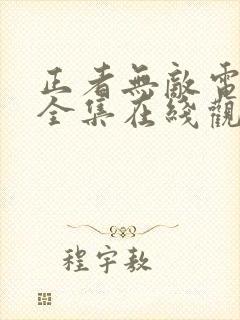 正者無敵電
全集在綫觀
程宇敖